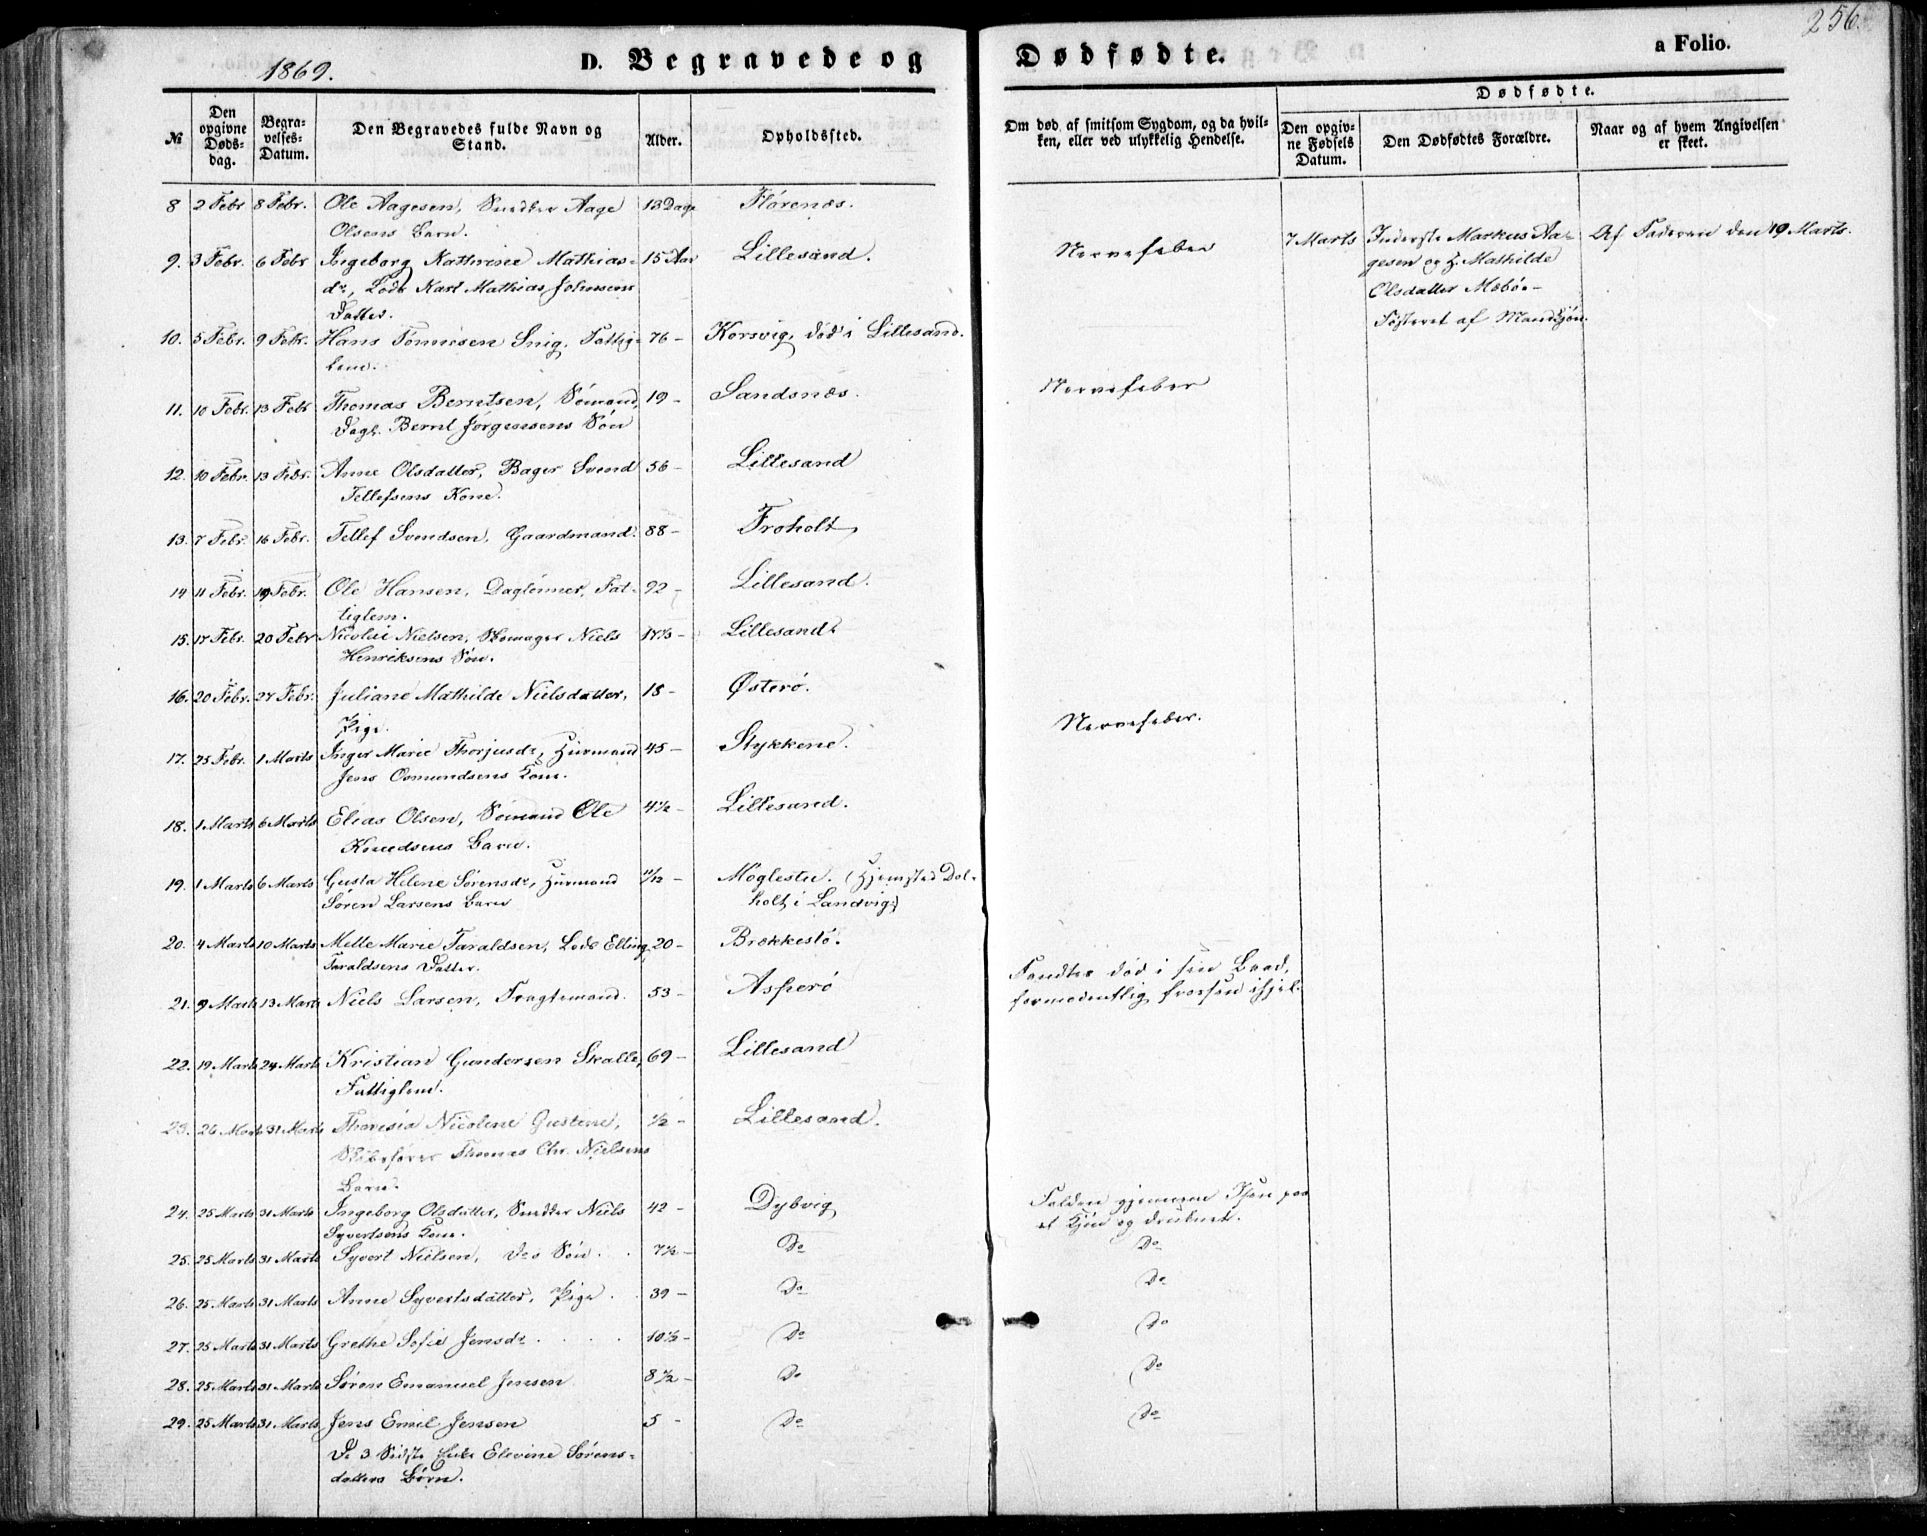 256.
1869.
D. Begravede og Dødfødte.
a Folio.
№
Den opgivne Døds-dag.
Begra-velses-Datum.
Den Begravedes fulde Navn og Stand.
Alder.
Opholdssted.
Om død af smitsom Sygdom, og da hvil-
ken, eller ved ulykkelig Hendelse.
Dødfødte.
Den opgiv-ne Fødsels Datum.
Den Dødfødtes Forældre.
Naar og af hvem Angivelsen er skeet.
8 2 Febr 8 Febr. Ole Aagesen, Smedker Aage 13 Dage Flørenæs.
Olsens Barn.
9. 3 Febr. 6 Febr Ingeborg Kathrine Mathias- 15 Aar Lillesand. Nervefeber
dr, Lods Karl Mathias Johnsens
Datter.
7 Marts Inderste Markus Aa- Af Faderen den 19 Marts.
gesen og H. Mathilde
Olsdatter Mæbø-
Fosteret af Mandkjøn.
10. 5 Febr. 9 Febr. Hans Tønnesen Snig, Fattig- 76 - Korsvig, død i Lillesand.
lem.
11. 10 Febr. 13 Febr Thomas Berntsen, Sømand, 19 - Sandsnæs. Nervefeber
Dagl. Bernt Jørgensens Søn
12. 10 Febr. 13 Febr. Anne Olsdatter, Bager Svend 56 - Lillesand
Tellefsens Kone.
13. 7 Febr. 16 Febr. Tellef Svendsen, Gaardmand. 88 - Froholt
14 11 Febr. 19 Febr. Ole Hansen, Daglønner, Fat- 92 - Lillesand.
tiglem.
15. 17 Febr. 20 Febr Nicolai Nielsen, Skomager Niels 17½ - Lillesand
Henriksens Søn.
16. 20 Febr. 27 Febr. Juliane Mathilde Nielsdatter, 18 - Østerø. Nervefeber.
Pige.
17. 25 Febr. 1 Marts Inger Marie Thorjusdr, Huusmand 45 - Stykkene.
Jens Osmundsens Kone.
18. 1 Marts 6 Marts Elias Olsen, Sømand Ole 4½ - Lillesand.
Knudsens Barn.
19. 1 Marts 6 Marts Gusta Helene Sørensdr, Huusmand 11/12 - Møglestu. (Hjemsted Dol-
Søren Larsens Barn holt i Landvig)
20. 4 Marts 10 Marts Mette Marie Taraldsen, Lods Elling 20 - Brekkestø.
Taraldsens Datter.
21. 9 Marts 13 Marts Niels Larsen, Fragtemand. 53 - Asperø Fandtes død i sin Baad,
formodentlig frossen ihjel.
22. 19 Marts 24 Marts Kristian Gundersen Skalle, 69 - Lillesand
Fattiglem.
23. 26 Marts 31 Marts Theresia Nicoline Gustine, ½ - Lillesand.
Skibsfører Thomas Chr. Nielsens
Barn.
24. 25 Marts 31 Marts Ingeborg Olsdatter, Smedker Niels 42 - Dybvig Falden gjennem Isen paa
Syvertsens Kone. et Kjøn og druknet.
25. 25 Marts 31 Marts Syvert Nielsen, Ds Søn. 7½ - Do Do
26. 25 Marts 31 Marts Anne Syvertsdatter, Pige. 39 - Do Do
27. 25 Marts 31 Marts Grethe Sofie Jensdr 10½ - Do Do
28. 25 Marts 31 Marts Søren Emanuel Jensen 8½ - Do Do
29. 25 Marts 31 Marts Jens Emil Jensen 5 - Do Do
De 3 Sidste Enke Elevine Sørens-
datters Børn.